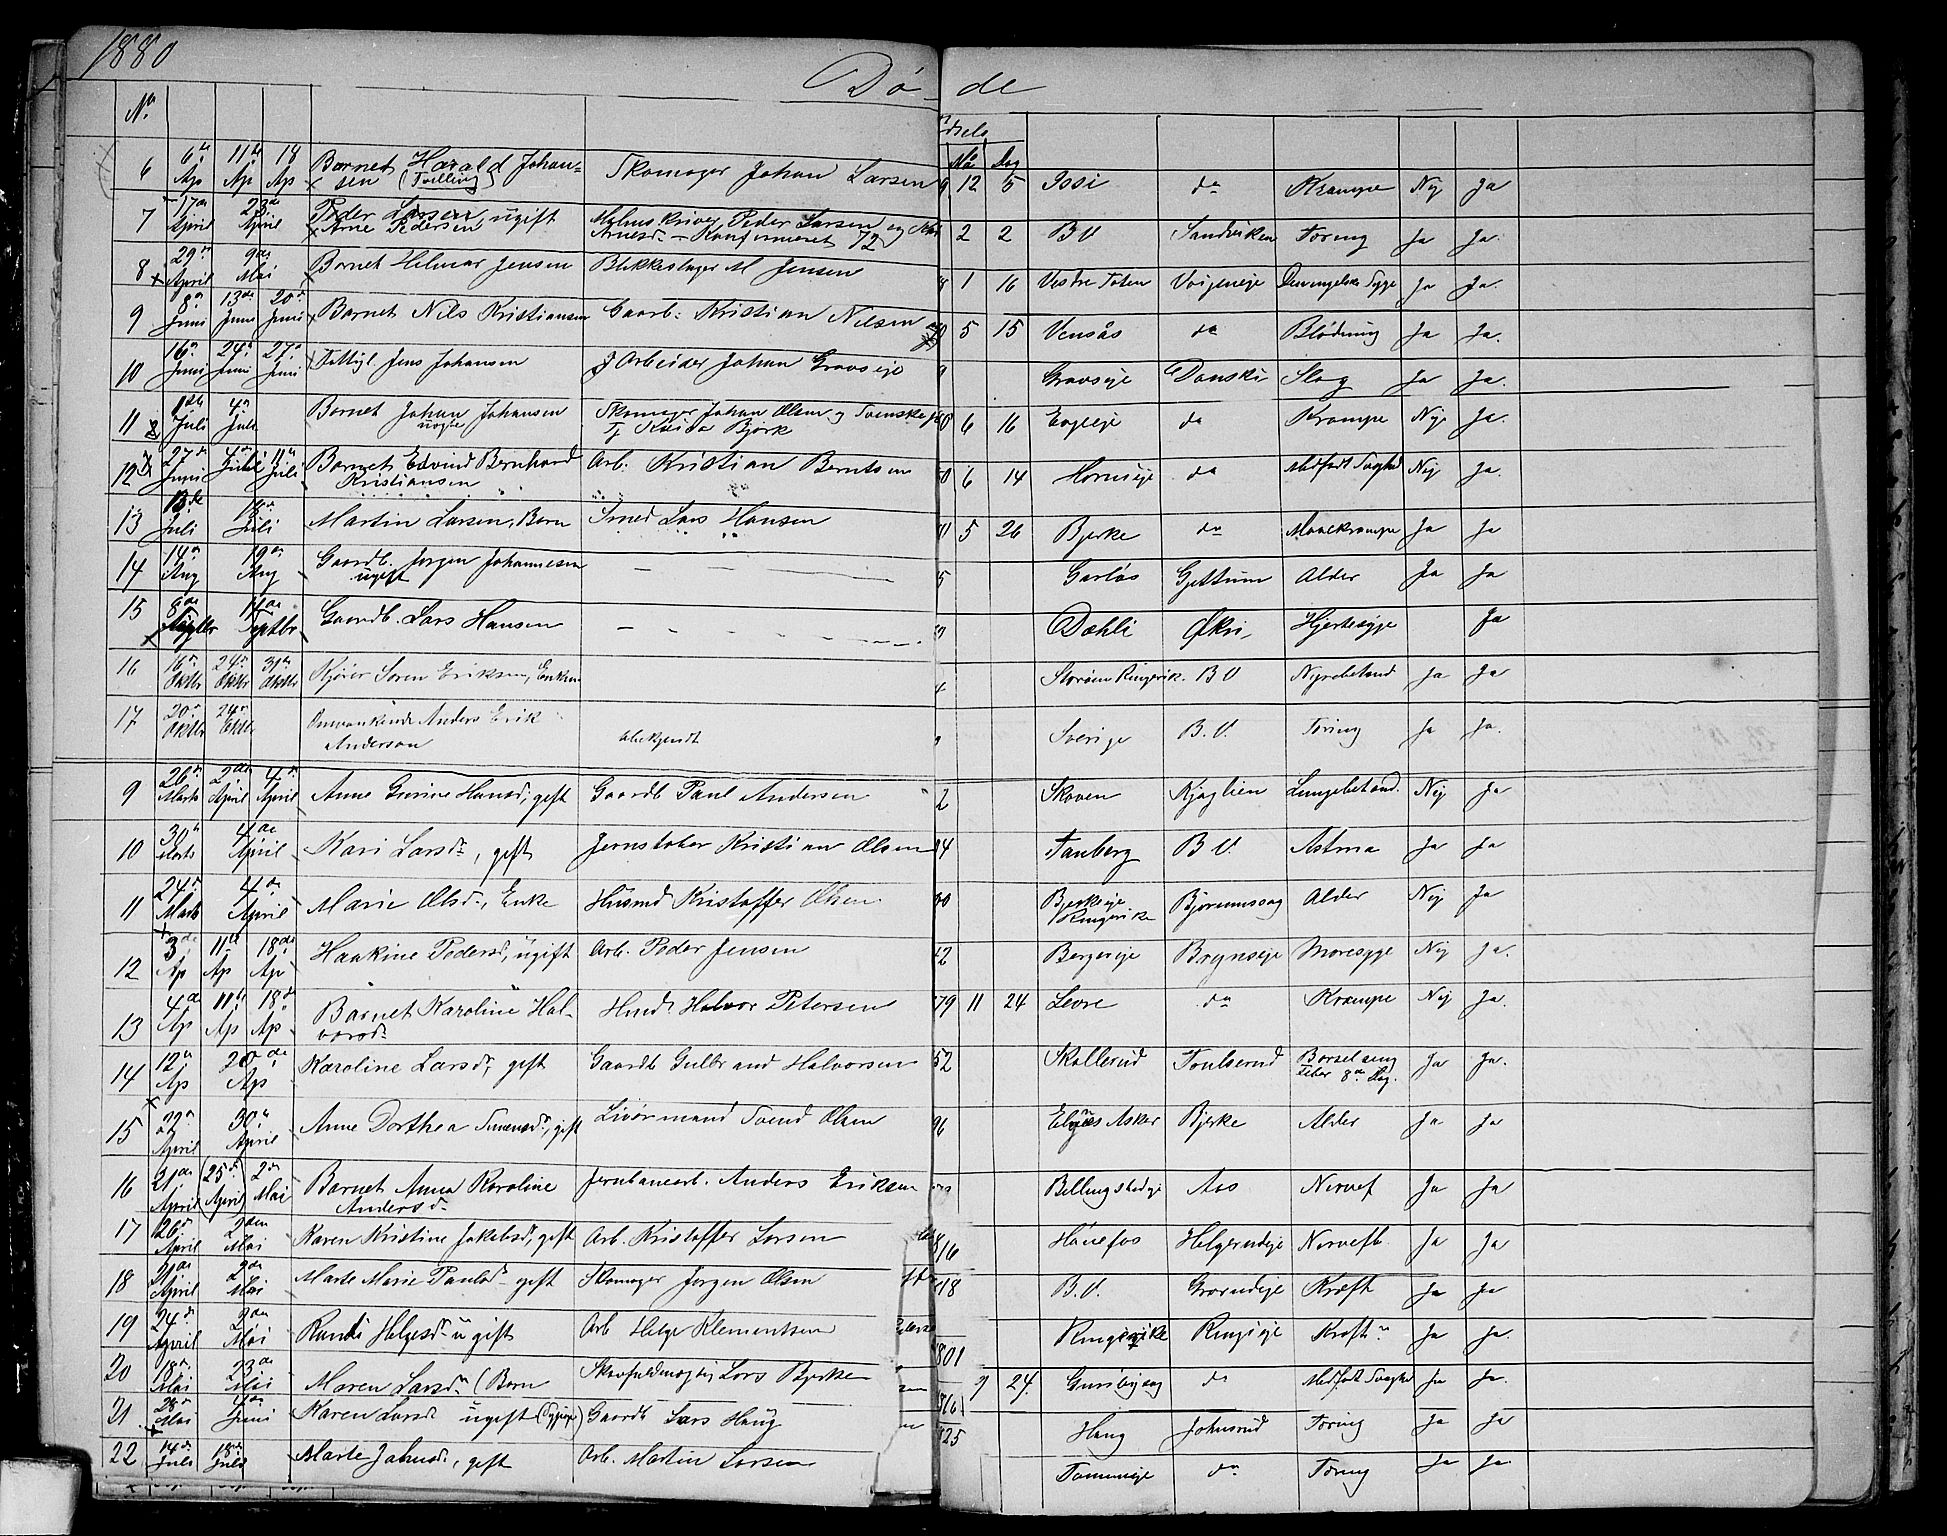 1880
Dö - de
No
Må Dag
6 6te Ap 11te Ap 18 Ap Barnet Harald Johan= Skomager Johan Larsen 9 12 5 Issi do Krampe Nej Ja
sen (Tvilling)
7 17de April 23de April Peder Larsen, ugift Peder Larsen og 2 2 B V Sandviken Tæring Ja Ja
Arne Pedersen Arnesd. - Konfirmeret 72
8 29de April 9de Mai Barnet Helmar Jensen Blikkeslager M Jensen 1 16 Vestre Toten Den engelske Syge Ja Ja.
9 8de Juni 13de Juni 20de Juni Barnet Nils Kristiansen Gaarb. Kristian Nilsen 5 15 Vensås do Blödning Ja Ja.
10 16de Juni 24de Juni 27de Juni Fattigl. Jens Johansen Arbeider Johan Gravseje Gravseje Danski Slag Ja Ja.
11 1ste Juli 4de Juli Barnet Johan Johansen Skomager Johan Olsen og Svenske 6 16 Engleje do Krampe Nej Ja.
uægte Tj Björk
12 27de Juni 4de Juli 11te Juli Barnet Edvind Bernhard Arb. Kristian Berntsen 6 14 Horniseje do Medfødt Svaghed Nej Ja.
Kristiansen
13 13de Juli 18de Juli Martin Larsen, Barn Smed Lars Hansen 5 26 Bjerke do Ja Ja
14 14de Aug 19de Aug Gaardb. Jørgen Johannesen 5 Garløs Gjettum Alder Ja Ja
ugift
15 8de Septbr 14de Septbr Gaardb. Lars Hansen Dæhli Økri Hjertesyge Ja
16 16de Oktbr 24de Oktbr 31te Oktbr Kjører Søren Eriksen, Enkem. Storøen Ringerik. B V Nyrebetænd Ja Ja
17 20de Oktbr 24de Oktbr Omvankende Anders Erik Sverige B. V. Tæring Ja Ja.
Anderson Ubekjendt
9 26de Marts 2den April 4de April Anne Gurine Hansd, gift Gaardb Paul Andersen 2 Skoven Kjaglien Lungebetænd. Nej Ja
10 30te Marts 4de April Kari Larsdr, gift Jernstøber Kristian Olsen 4 Tanberg B V. Astma Ja Ja
11 24de Marts 4de April Marie Olsdr, Enke Husmd Kristoffer Olsen Bjerkeje Bjørumssag Alder Nej Ja
Ringerike
12 3de Ap 11te Ap 18de Ap Haakine Pedersd, ugift Arb. Peder Jensen 2 Bergereje Brynseje Moresyge Nej Ja.
13 4de Ap 11te Ap 18de Ap Barnet Karoline Hal- Husmd Halvor Petersen 79 11 24 Levre do Krampe Nej Ja
vorsdr
14 12te Ap 20de Ap Karoline Larsdr, gift Gaardb Gulbrand Halvorsen 52 Skallerud Toulserud Barselseng Ja Ja.
Feber 8de Dag.
15 22de April 30te April Anne Dorthea Simensdr, gift Svend Olsen 96 Asker Bjerke Alder Ja Ja
16 21de April (25de April) 2den Mai Barnet Anna Karoline Jernbanearb. Anders Eriksen Billingstadeje Aas Nervef Ja Ja
Andersdr
17 26de April 2den Mai Karen Kristine Jakobsd, gift Arb. Kristoffer Larsen 816 Hönefos Helgerudeje Nervefb. Ja Ja
18 21de April 2den Mai Marte Marie Paulsdr gift Skomager Jørgen Olsen 18 B. V. Gravudeje Kræft Ja Ja
19 24de April 2den Mai Randi Helgesdr ugift Arb Helge Klementsen 801 Ringerike Ringieje Kræft Ja Ja.
20 18de Mai 23de Mai Maren Larsdr (Barn Skovfuldmægtig Lars Bjerke 9 24. do Medfødt Svaghed Ja Ja
21 28de Mai 4de Juni Karen Larsd ugift (Sypige) Gaardb Lars Haug 25 Haug Johnsrud Tæring Ja Ja
22 14de Juli 18de Juli Marte Johnsdr, gift Arb. Martin Larsen Tommeje do Tæring Ja Ja.